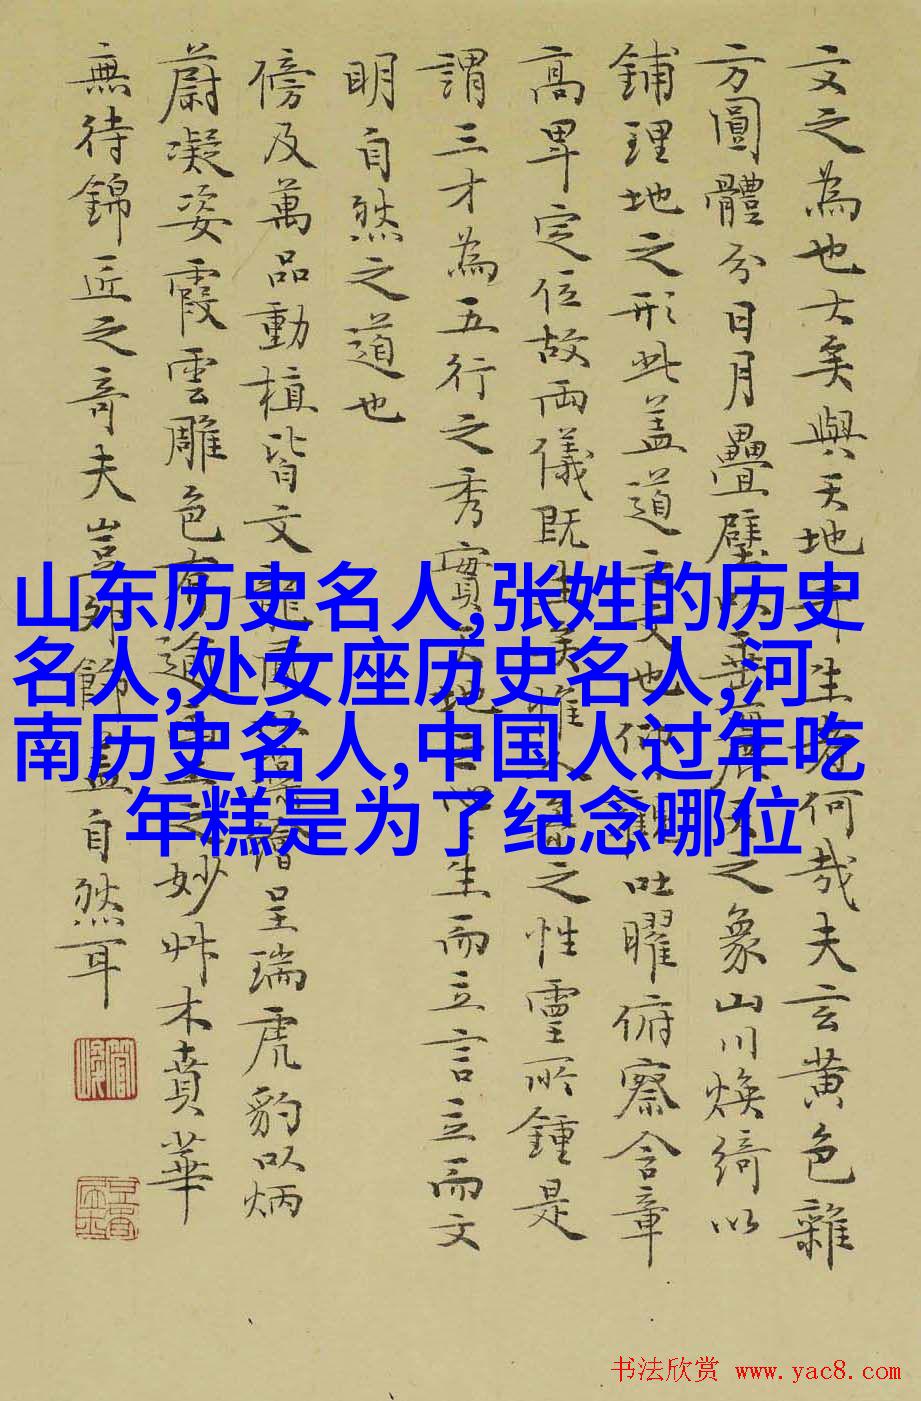 文之為也大矣與天地生何哉夫玄黄色雜
方圓體分日月疊璧以垂麗天之象山川煥綺以
鋪理地之形此盖道之文也仰觀吐曜俯察含章
高卑定位故兩儀既生矣惟人之性靈所鍾是
謂三才為五行之秀實天地生而立言立而文
明自然之道也
傍及萬品動植皆文龍鳳繪呈瑞虎豹以炳
蔚凝姿霞雲雕色有逾之妙艸木賁華
無待錦匠之奇夫豈外飾蓋自然耳
山东历史名人,张姓的历史
名人,处女座历史名人,河
南历史名人,中国人过年吃
年糕是为了纪念哪位
书法欣赏 www.yac8.com